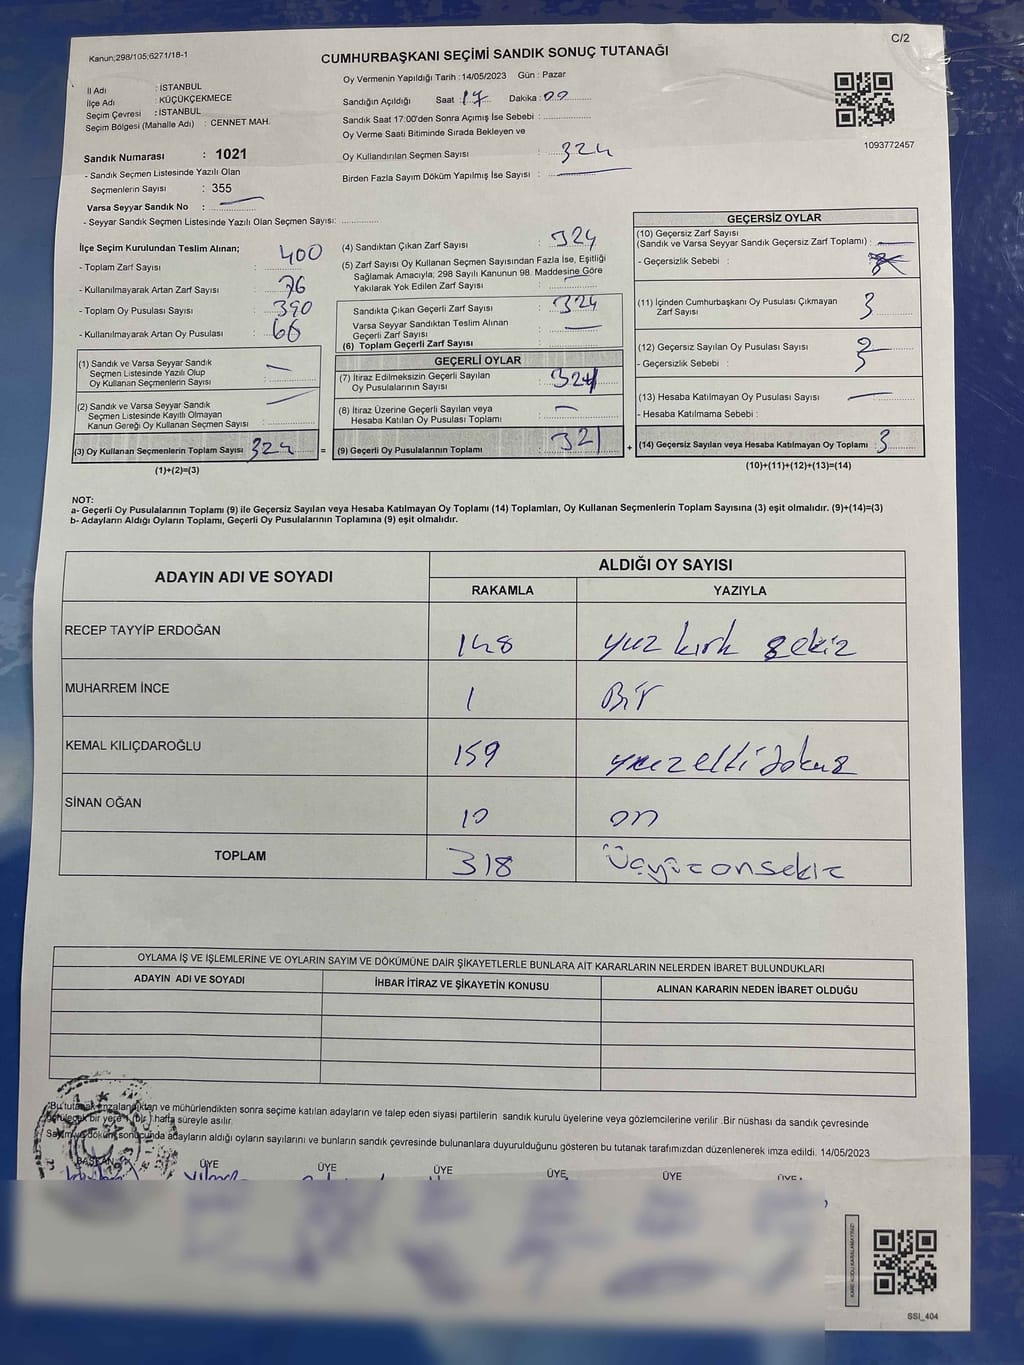 Kanun;298/105;6271/18-1
C/2
CUMHURBAŞKANI SEÇİMİ SANDIK SONUÇ TUTANAĞI
İl Adı : İSTANBUL
İlçe Adı : KÜÇÜKÇEKMECE
Seçim Çevresi : İSTANBUL
Seçim Bölgesi (Mahalle Adı) : CENNET MAH.
Sandık Numarası : 1021
- Sandık Seçmen Listesinde Yazılı Olan
Seçmenlerin Sayısı : 355
Varsa Seyyar Sandık No :
- Seyyar Sandık Seçmen Listesinde Yazılı Olan Seçmen Sayısı:
Oy Vermenin Yapıldığı Tarih : 14/05/2023 Gün : Pazar
Sandığın Açıldığı Saat : 17 Dakika : 00
Sandık Saat 17:00'den Sonra Açımış İse Sebebi :
Oy Verme Saati Bitiminde Sırada Bekleyen ve
Oy Kullandırılan Seçmen Sayısı : 324
Birden Fazla Sayım Döküm Yapılmış İse Sayısı :
1093772457
İlçe Seçim Kurulundan Teslim Alınan;
- Toplam Zarf Sayısı : 400
- Kullanılmayarak Artan Zarf Sayısı : 76
- Toplam Oy Pusulası Sayısı : 390
- Kullanılmayarak Artan Oy Pusulası : 66
(1) Sandık ve Varsa Seyyar Sandık
Seçmen Listesinde Yazılı Olup
Oy Kullanan Seçmenlerin Sayısı :
(2) Sandık ve Varsa Seyyar Sandık
Seçmen Listesinde Kayıtlı Olmayan
Kanun Gereği Oy Kullanan Seçmen Sayısı :
(3) Oy Kullanan Seçmenlerin Toplam Sayısı 324 =
(1)+(2)=(3)
(4) Sandıktan Çıkan Zarf Sayısı : 324
(5) Zarf Sayısı Oy Kullanan Seçmen Sayısından Fazla İse, Eşitliği
Sağlamak Amacıyla; 298 Sayılı Kanunun 98. Maddesine Göre
Yakılarak Yok Edilen Zarf Sayısı :
Sandıkta Çıkan Geçerli Zarf Sayısı : 324
Varsa Seyyar Sandıktan Teslim Alınan
Geçerli Zarf Sayısı :
(6) Toplam Geçerli Zarf Sayısı :
GEÇERLİ OYLAR
(7) İtiraz Edilmeksizin Geçerli Sayılan
Oy Pusulalarının Sayısı :
(8) İtiraz Üzerine Geçerli Sayılan veya
Hesaba Katılan Oy Pusulası Toplamı :
(9) Geçerli Oy Pusulalarının Toplamı : 321 +
GEÇERSİZ OYLAR
(10) Geçersiz Zarf Sayısı
(Sandık ve Varsa Seyyar Sandık Geçersiz Zarf Toplamı) :
- Geçersizlik Sebebi :
(11) İçinden Cumhurbaşkanı Oy Pusulası Çıkmayan
Zarf Sayısı : 3
(12) Geçersiz Sayılan Oy Pusulası Sayısı :
- Geçersizlik Sebebi :
(13) Hesaba Katılmayan Oy Pusulası Sayısı :
- Hesaba Katılmama Sebebi :
(14) Geçersiz Sayılan veya Hesaba Katılmayan Oy Toplamı : 3
(10)+(11)+(12)+(13)=(14)
NOT:
a- Geçerli Oy Pusulalarının Toplamı (9) ile Geçersiz Sayılan veya Hesaba Katılmayan Oy Toplamı (14) Toplamları, Oy Kullanan Seçmenlerin Toplam Sayısına (3) eşit olmalıdır. (9)+(14)=(3)
b- Adayların Aldığı Oyların Toplamı, Geçerli Oy Pusulalarının Toplamına (9) eşit olmalıdır.
ADAYIN ADI VE SOYADI ALDIĞI OY SAYISI
RAKAMLA YAZIYLA
RECEP TAYYİP ERDOĞAN 148 yuz kırk sekiz
MUHARREM İNCE 1 Bir
KEMAL KILIÇDAROĞLU 159 yuz elli dokuz
SİNAN OĞAN 10 on
TOPLAM 318 Üçyüzonsekiz
OYLAMA İŞ VE İŞLEMLERİNE VE OYLARIN SAYIM VE DÖKÜMÜNE DAİR ŞİKAYETLERLE BUNLARA AİT KARARLARIN NELERDEN İBARET BULUNDUKLARI
ADAYIN ADI VE SOYADI İHBAR İTİRAZ VE ŞİKAYETİN KONUSU ALINAN KARARIN NEDEN İBARET OLDUĞU
Bu tutanak imzalandıktan ve mühürlendikten sonra seçime katılan adayların ve talep eden siyasi partilerin sandık kurulu üyelerine veya gözlemcilerine verilir .Bir nüshası da sandık çevresinde
bir yere 1 (bir) hafta süreyle asılır.
Sayım ve döküm sonucunda adayların aldığı oyların sayılarını ve bunların sandık çevresinde bulunanlara duyurulduğunu gösteren bu tutanak tarafımızdan düzenlenerek imza edildi. 14/05/2023
BAŞKAN ÜYE ÜYE ÜYE ÜYE ÜYE ÜYE
KARE KODU KARALAMAYINIZ!
SSI_404